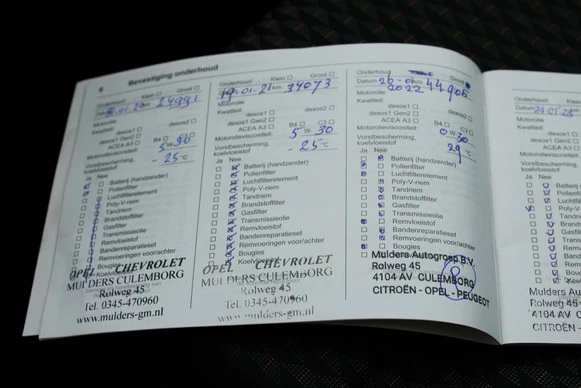 6 Bevestiging onderhoud
Onderhoud: Klein Groot
Datum km 24991
Motorolie
Kwaliteit: dexos1 dexos2
dexos1 Gen2
ACEA A3 B4 C3
Motorolieviscositeit: 5 W 30
Vorstbescherming,
koelvloeistof -25°C
Ja Nee
Batterij (handzender)
Pollenfilter
Luchtfilterelement
Poly-V-riem
Tandriem
Brandstoffilter
Gasfilter
Transmissieolie
Remvloeistof
Bandenreparatieset
Remvoeringen voor/achter
Bougies
OPEL CHEVROLET
MULDERS CULEMBORG
Rolweg 45
Tel. 0345-470960
www.mulders-gm.nl
Onderhoud: Klein Groot
19-01-21 km 34073
Motorolie
Kwaliteit: dexos1 dexos2
dexos1 Gen2
ACEA A3 B4 C3
Motorolieviscositeit: 5 W 30
Vorstbescherming,
koelvloeistof -25°C
Ja Nee
Batterij (handzender)
Pollenfilter
Luchtfilterelement
Poly-V-riem
Tandriem
Brandstoffilter
Gasfilter
Transmissieolie
Remvloeistof
Bandenreparatieset
Remvoeringen voor/achter
Bougies
OPEL CHEVROLET
MULDERS CULEMBORG
Rolweg 45
Tel. 0345-470960
www.mulders-gm.nl
Onderhoud Klein Groot
Datum 26-01 km 44906
Motorolie 2022
Kwaliteit: dexos1
dexos1 Gen2
ACEA A3 B4 C3
Motorolieviscositeit: 0 W 30
Vorstbescherming,
koelvloeistof 29°C
Ja Nee
Batterij (handzender)
Pollenfilter
Luchtfilterelement
Poly-V-riem
Tandriem
Brandstoffilter
Gasfilter
Transmissieolie
Remvloeistof
Bandenreparatieset
Remvoeringen voor/achter
Bougies
Mulders Autogroep B.V.
Rolweg 45
4104 AV CULEMBORG
CITROËN - OPEL - PEUGEOT
Onderhoud:
Datum
Motorolie
Kwaliteit:
Motorolieviscositeit
Vorstbescherming,
koelvloeistof
Ja Nee
Rolweg 45
4104 AV
CITROËN